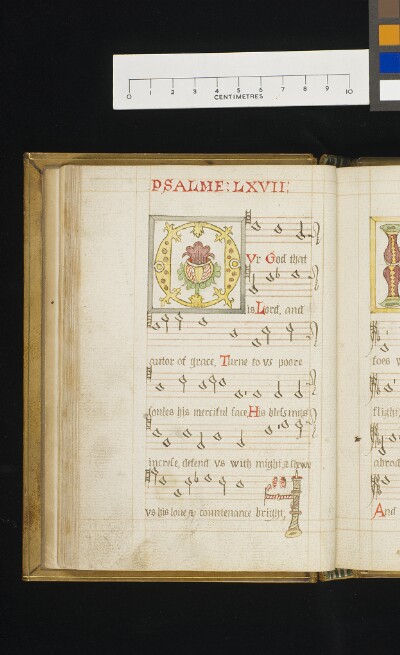 0 1 2 3 4 5 6 7 8 9 10
CENTIMETRES
PSALME: LXVII:
OVr God that
is Lord, and
autor of grace, Turne to vs poore
soules his merciful face, His blessings
increse, defend vs with might, & shewe
vs his loue & countenance bright,
flight
abroad
And